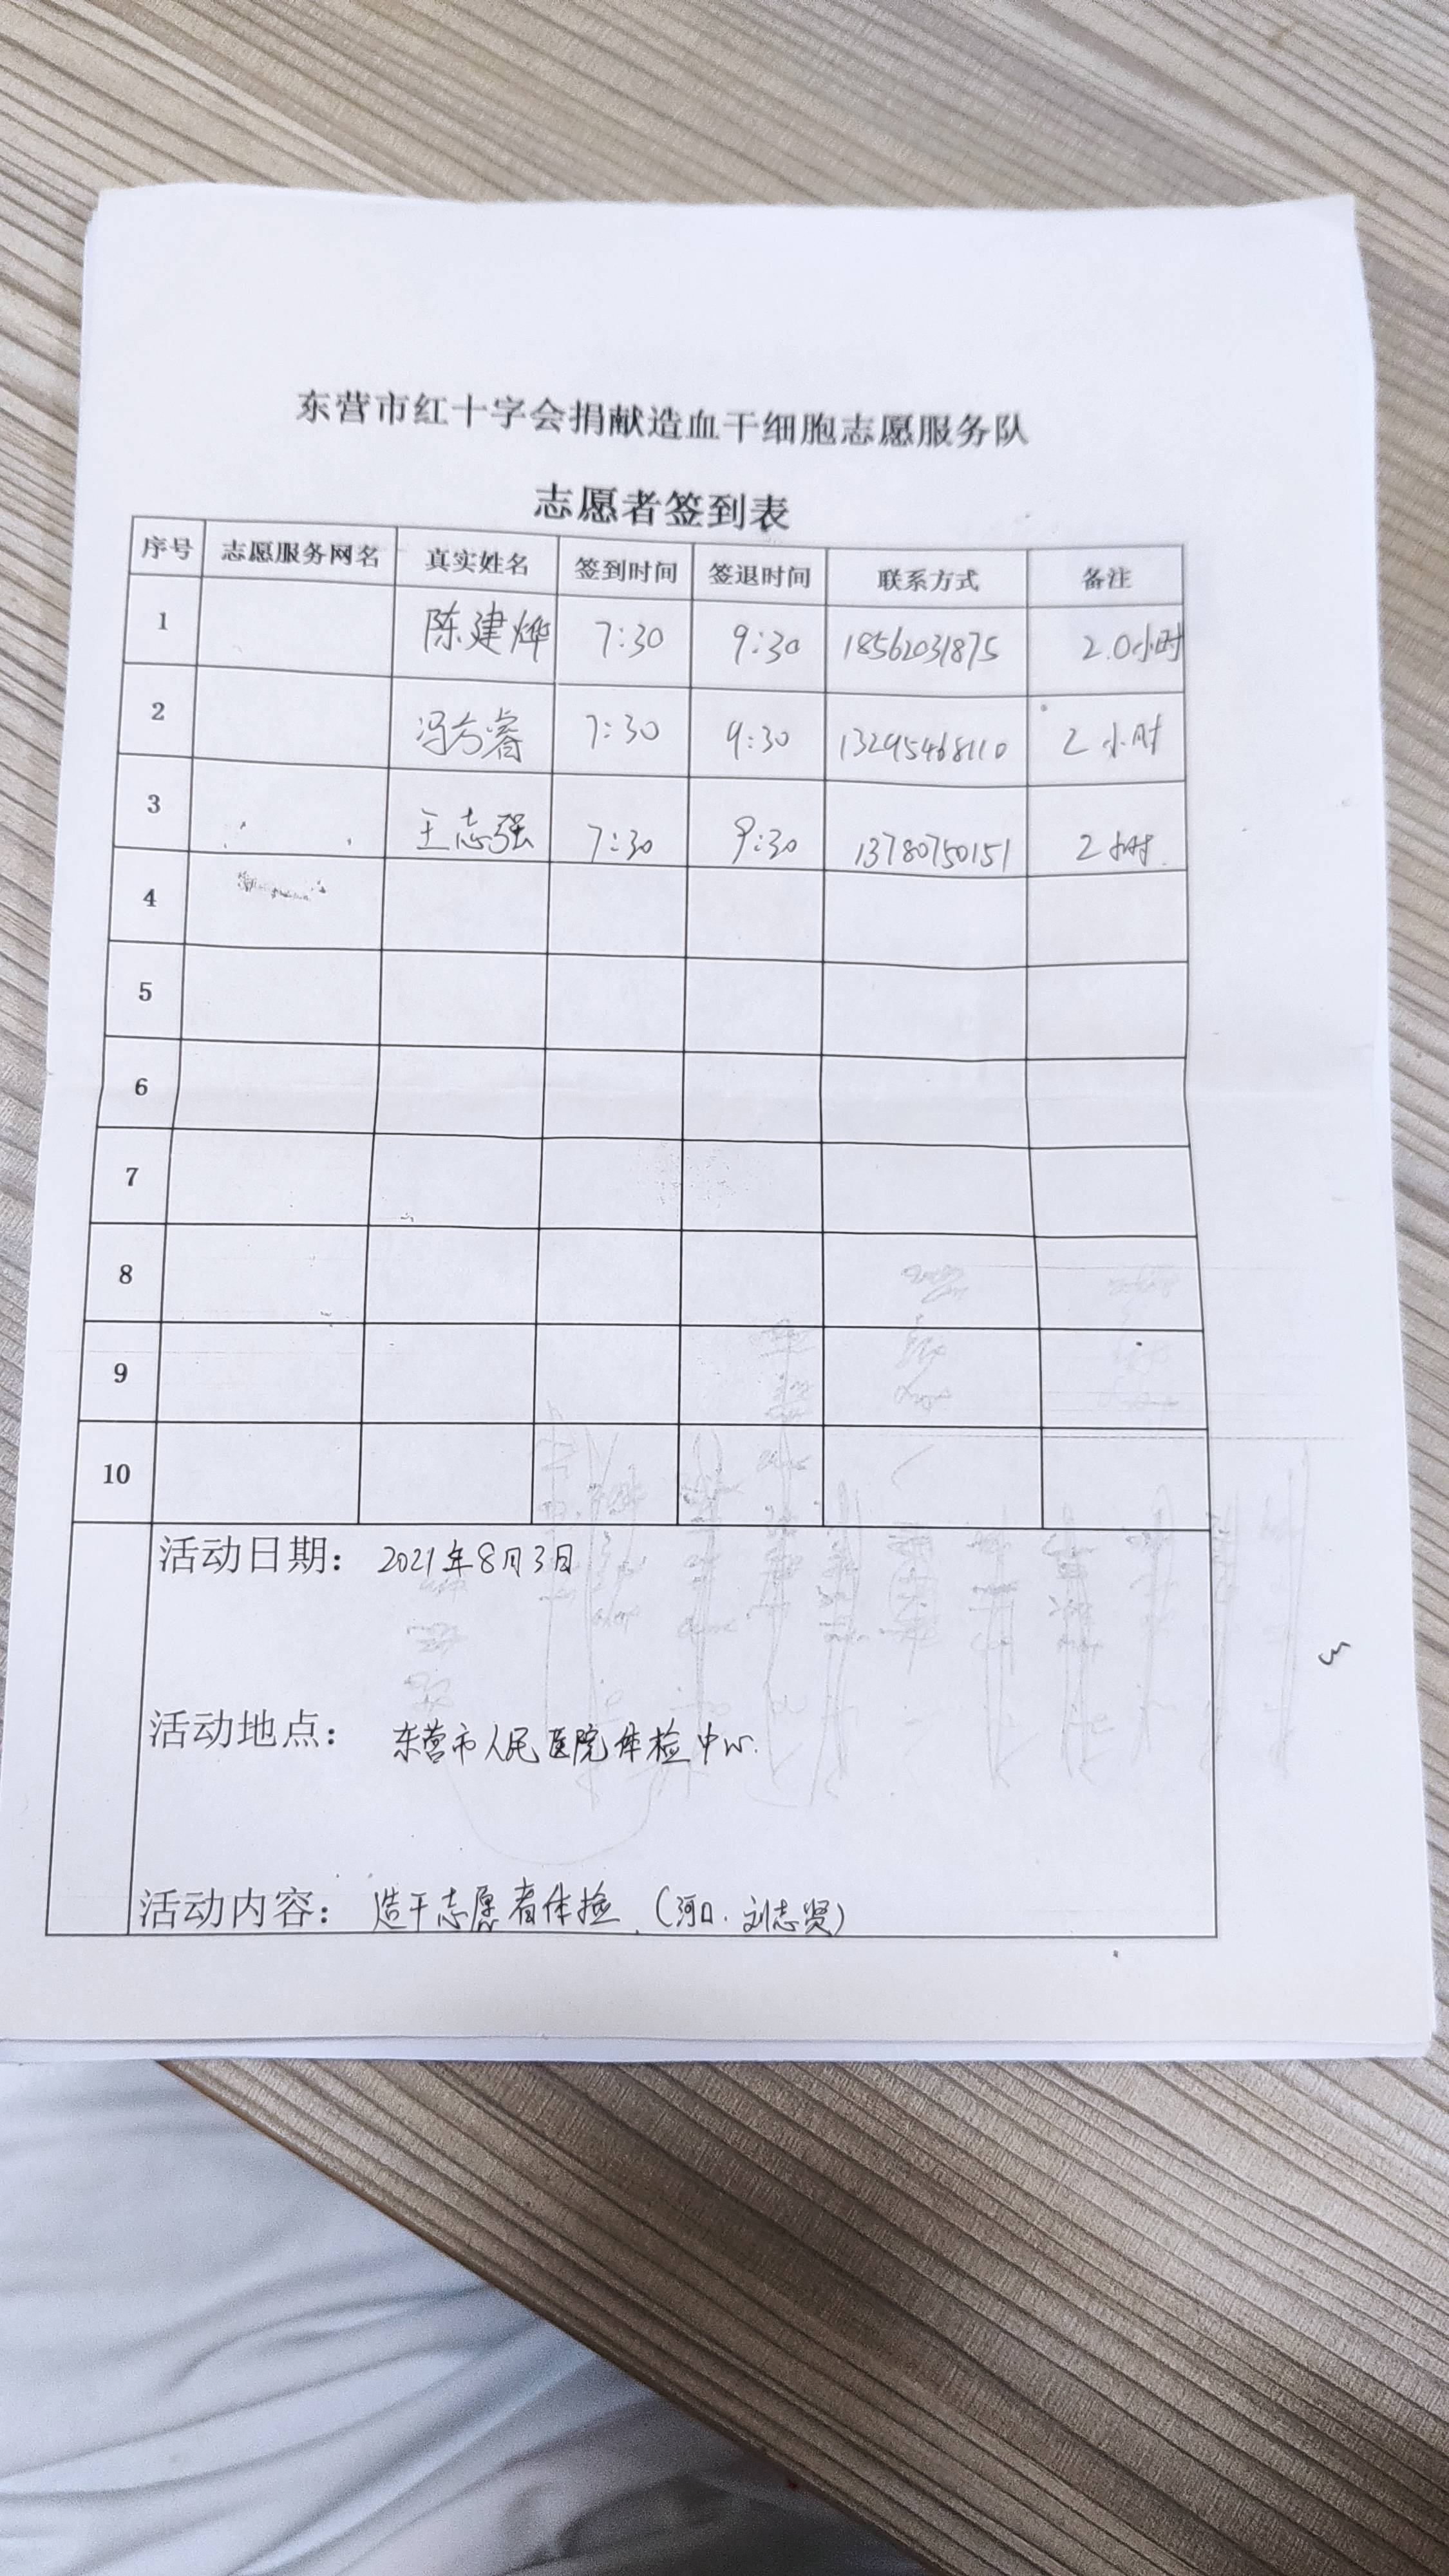 东营市红十字会捐献造血干细胞志愿服务队
志愿者签到表
序号 志愿服务网名 真实姓名 签到时间 签退时间 联系方式 备注
1 陈建烨 7:30 9:30 18562031875 2.0小时
2 冯方睿 7:30 9:30 13295468110 2小时
3 王志强 7:30 9:30 13780750151 2小时.
4
5
6
7
8
9
10
活动日期： 2021年8月3日
活动地点： 东营市人民医院体检中心.
活动内容： 造干志愿者体检.（河口.刘志贤）